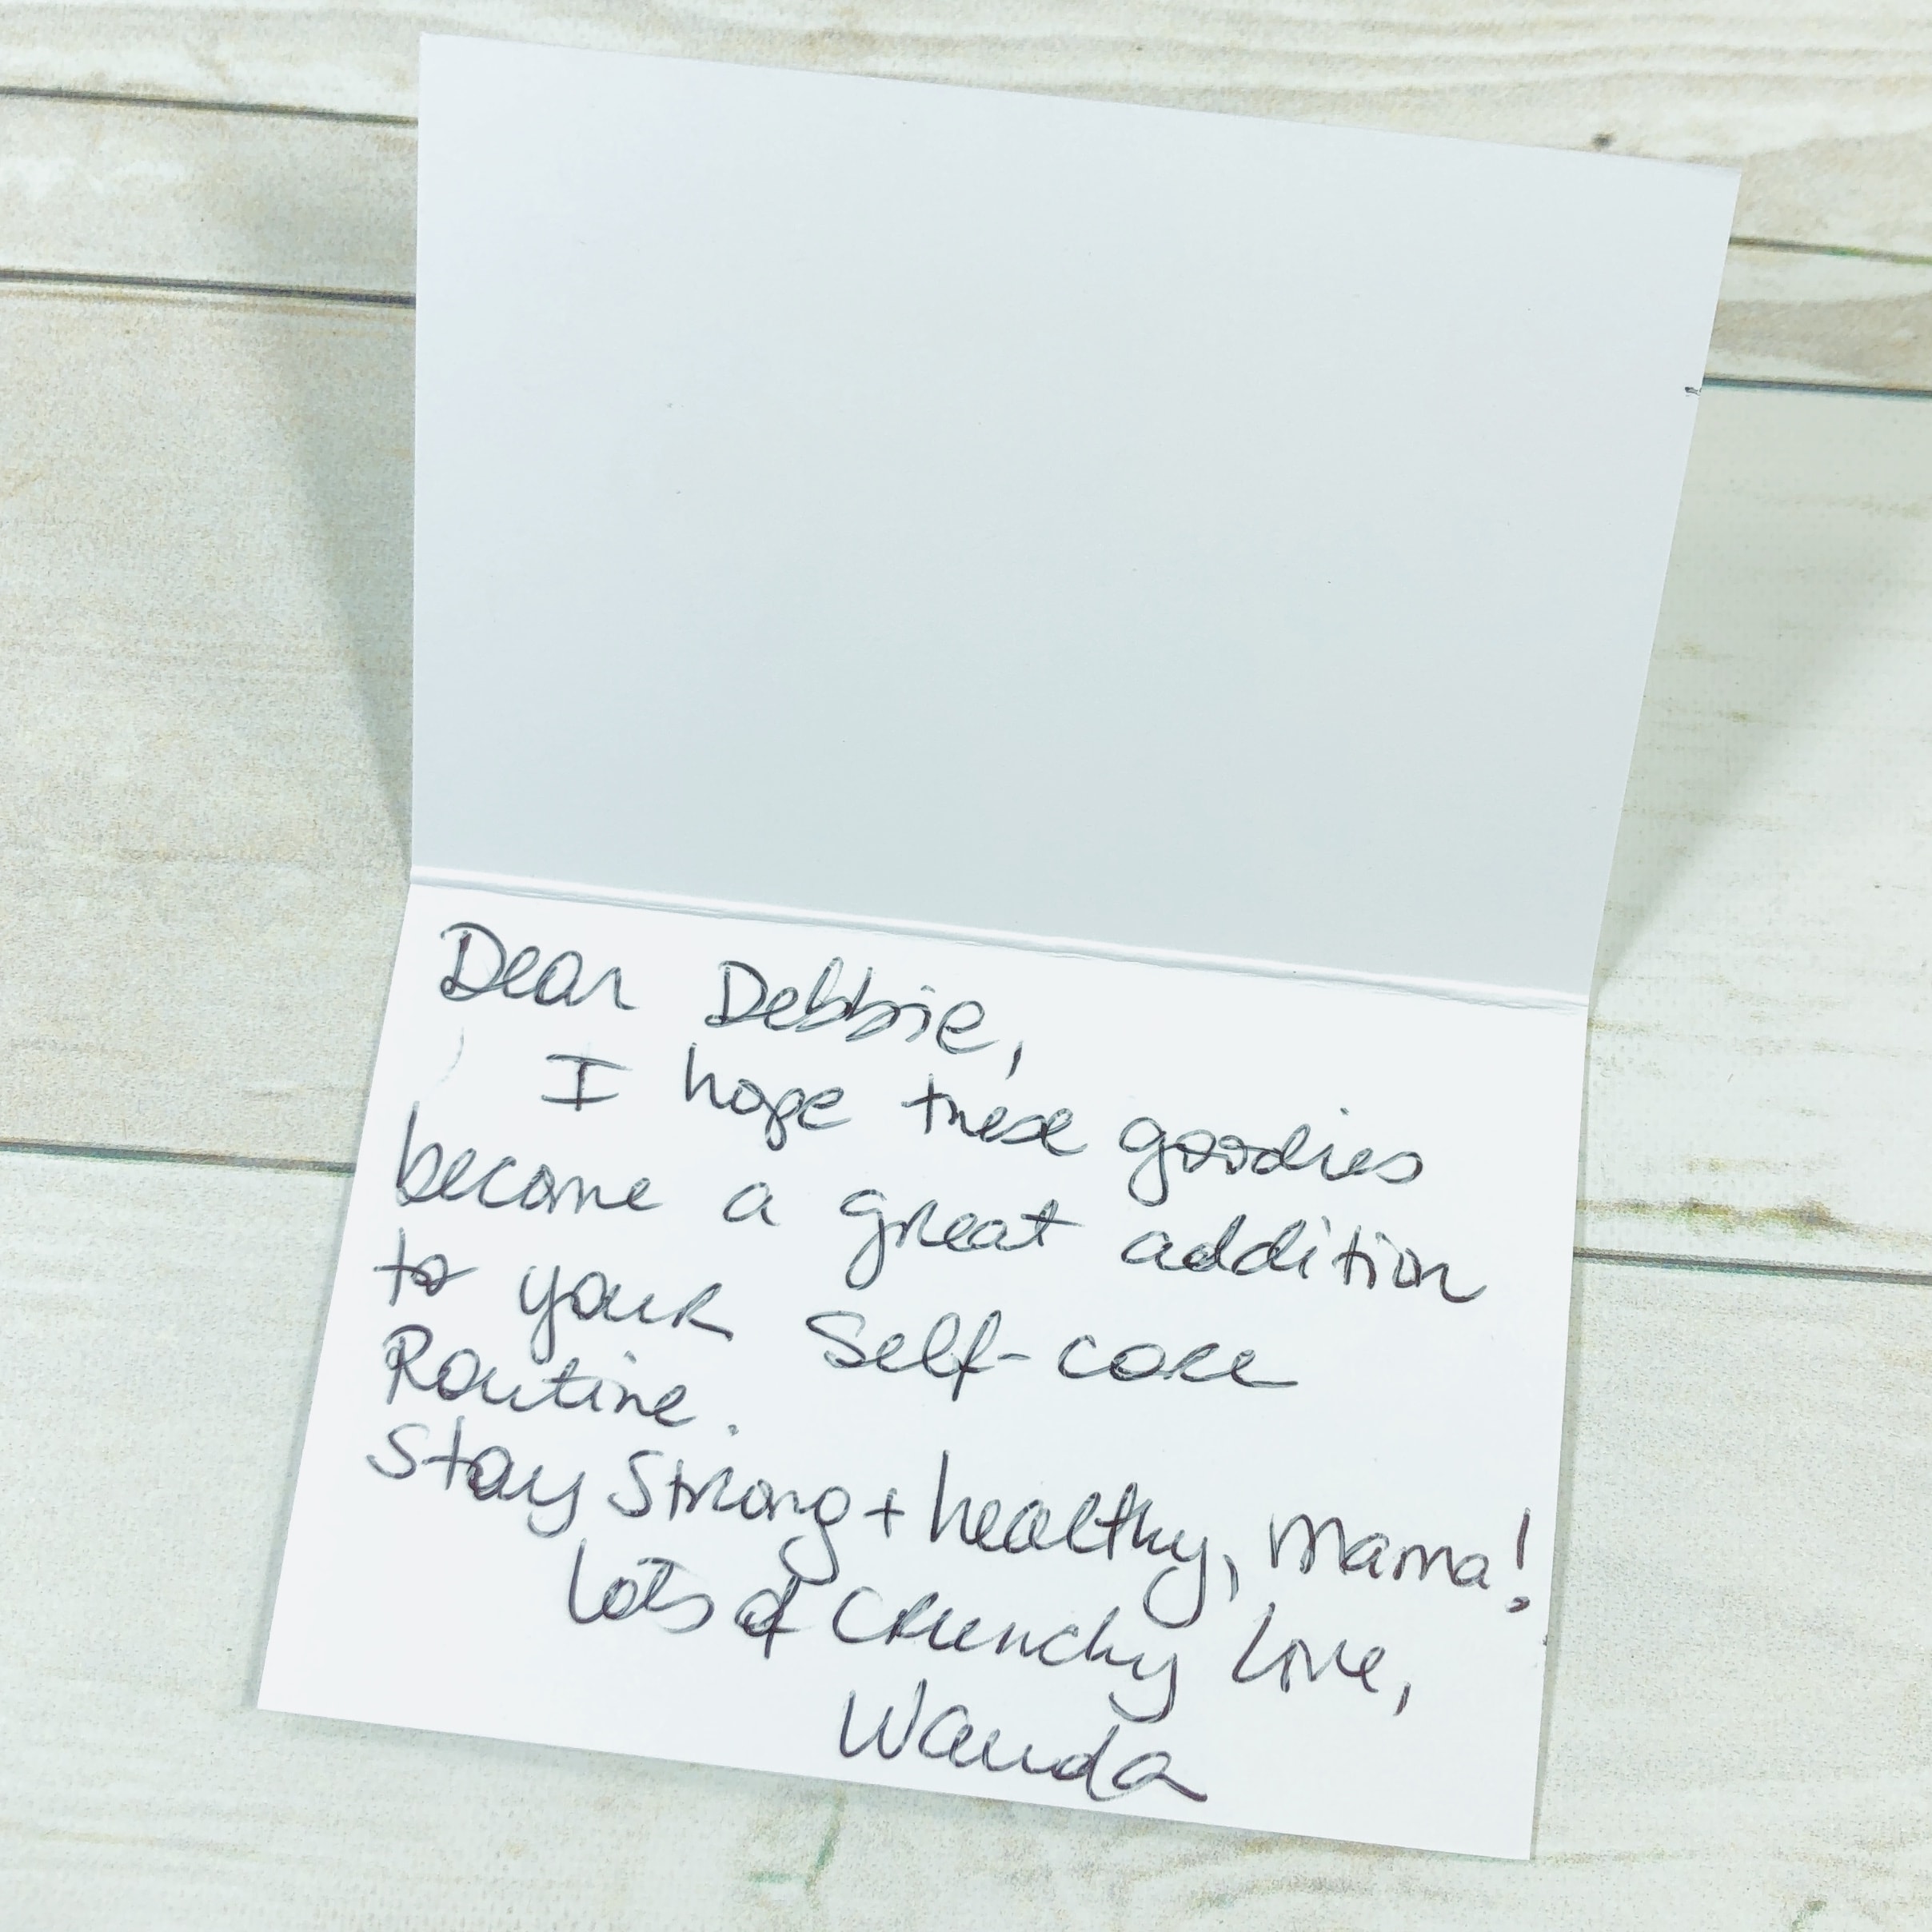 Dear Debbie,
I hope these goodies
become a great addition
to your Self-care
Routine.
Stay Strong + healthy, mama!
Lots of Crunchy Love,
Wanda